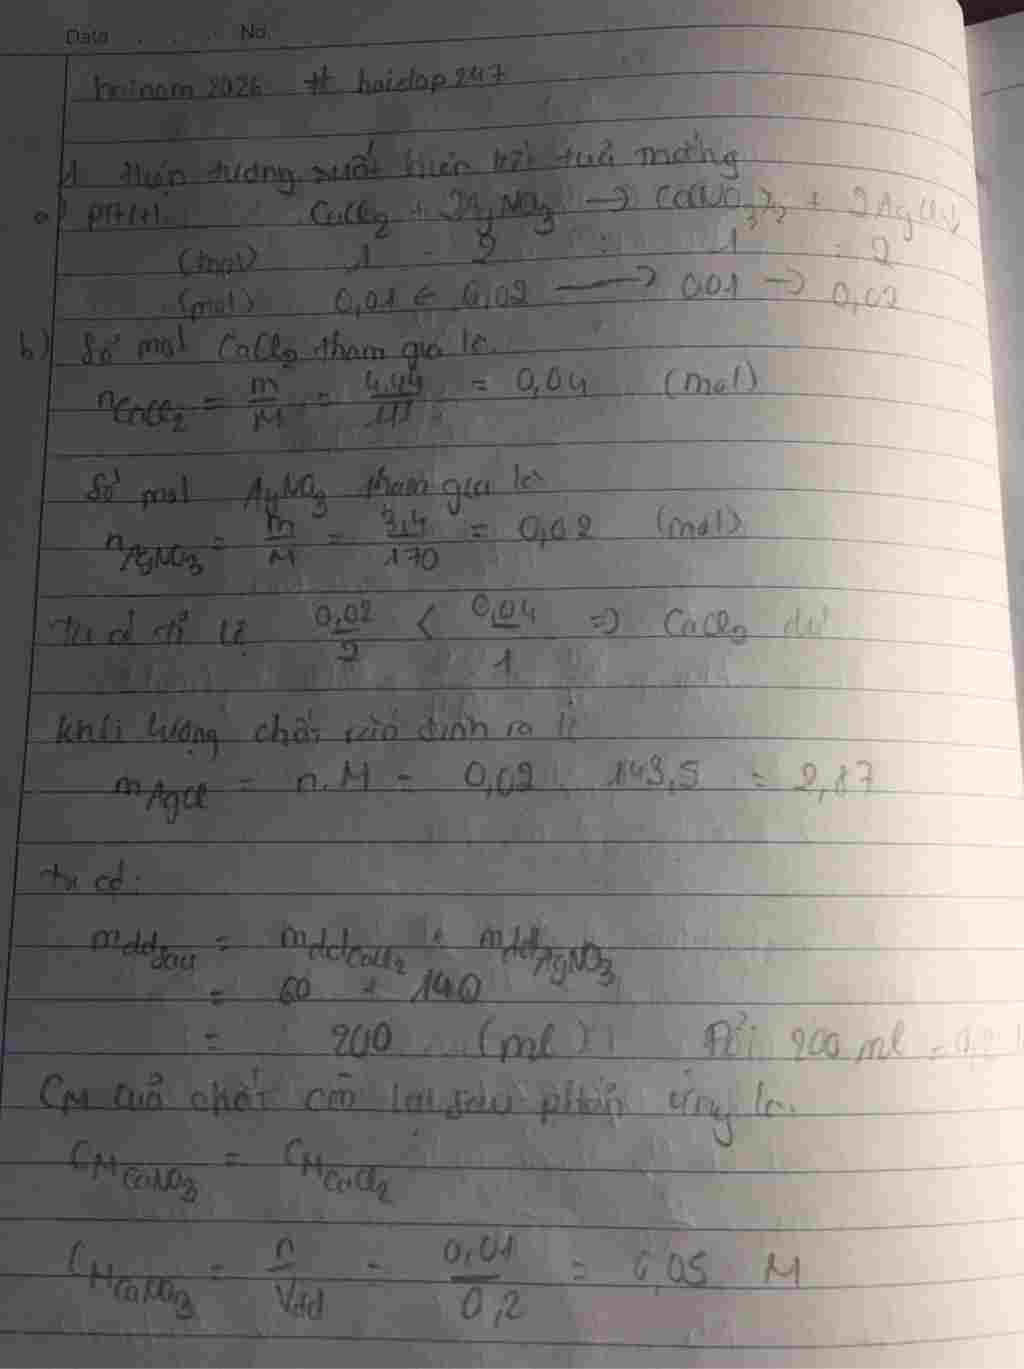 Date No.
hainam2026 # hoidap247
1 Hiện tượng xuất hiện kết tủa trắng
a) PTHH. CaCl2 + 2AgNO3 → Ca(NO3)2 + 2AgCl↓
(mol) 1 : 2 : 1 : 2
(mol) 0,01 ← 0,02 → 0,01 → 0,02
b) Số mol CaCl2 tham gia là
nCaCl2 = m/M = 4,44/111 = 0,04 (mol)
Số mol AgNO3 tham gia là
nAgNO3 = m/M = 3,4/170 = 0,02 (mol)
ta có tỉ lệ 0,02/2 < 0,04/1 => CaCl2 dư
khối lượng chất rắn sinh ra là
mAgCl = n.M = 0,02 . 143,5 = 2,87
ta có:
mddsau = mddCaCl2 + mddAgNO3
= 60 + 140
= 200 (ml) Đổi 200 ml = 0,2 l
CM của chất còn lại sau phản ứng là.
CMCaNO3 = CMCaCl2
CMCaNO3 = n/Vdd = 0,01/0,2 = 0,05 M